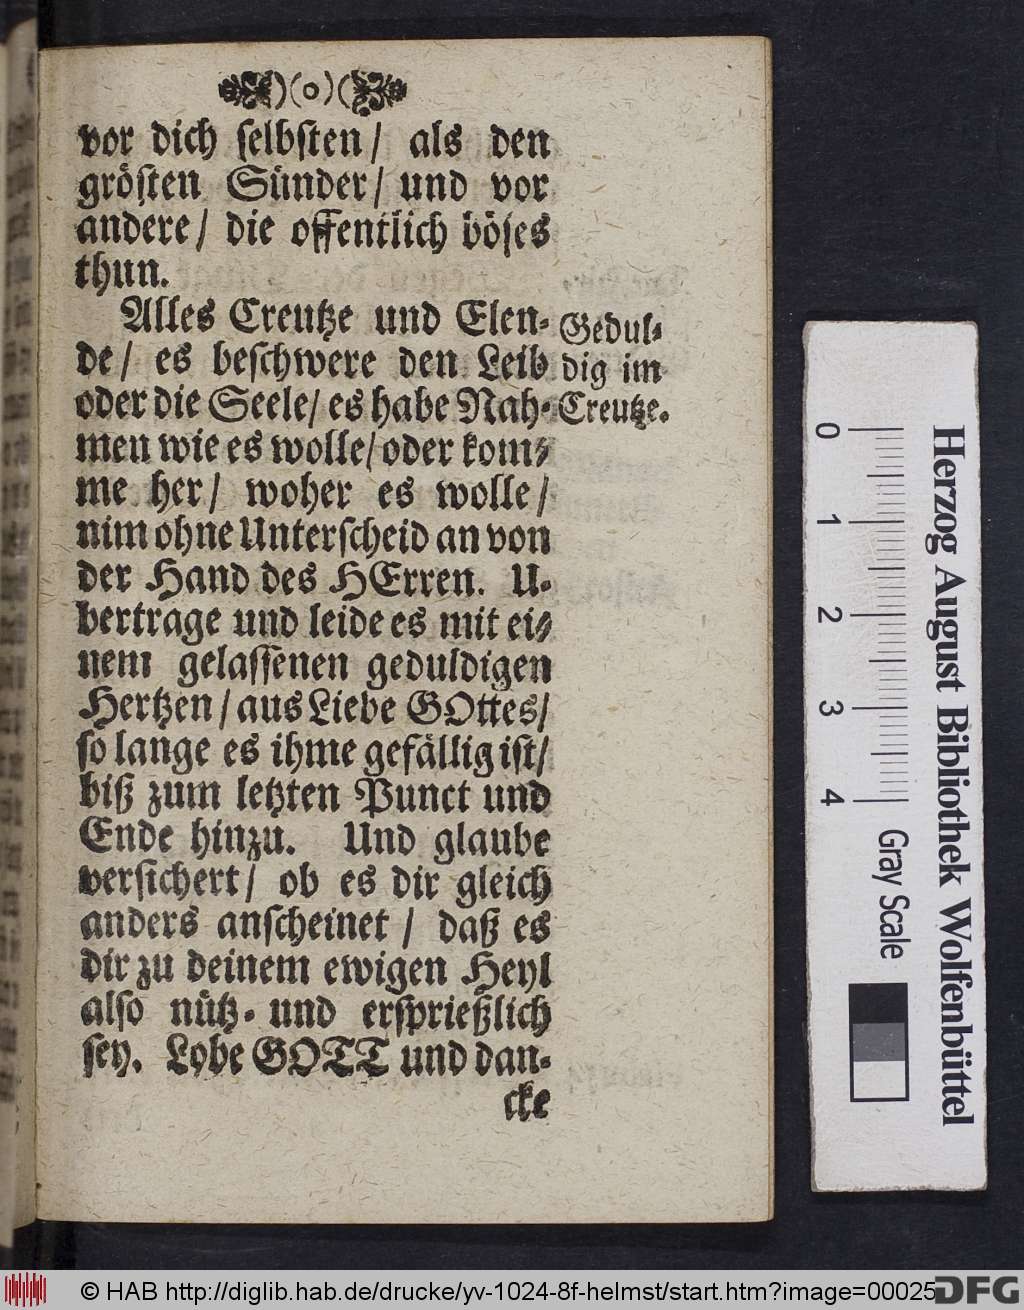 )(o)(
vor dich ſelbſten/ als den
gröſten Sünder/ und vor
andere/ die offentlich böſes
thun.
Alles Creutze und Elen-
de/ es beſchwere den Leib
oder die Seele/ es habe Nah-
men wie es wolle/ oder kom-
me her/ woher es wolle/
nim ohne Unterſcheid an von
der Hand des HErren. U-
bertrage und leide es mit ei-
nem gelaſſenen geduldigen
Hertzen/ aus Liebe GOttes/
ſo lange es ihme gefällig iſt/
biß zum letzten Punct und
Ende hinzu. Und glaube
verſichert/ ob es dir gleich
anders anſcheinet/ daß es
dir zu deinem ewigen Heyl
alſo nütz- und erſprießlich
ſey. Lobe GOTT und dan-
cke
Gedul-
dig im
Creutze.
0 1 2 3 4 Gray Scale
Herzog August Bibliothek Wolfenbüttel
© HAB http://diglib.hab.de/drucke/yv-1024-8f-helmst/start.htm?image=00025
DFG